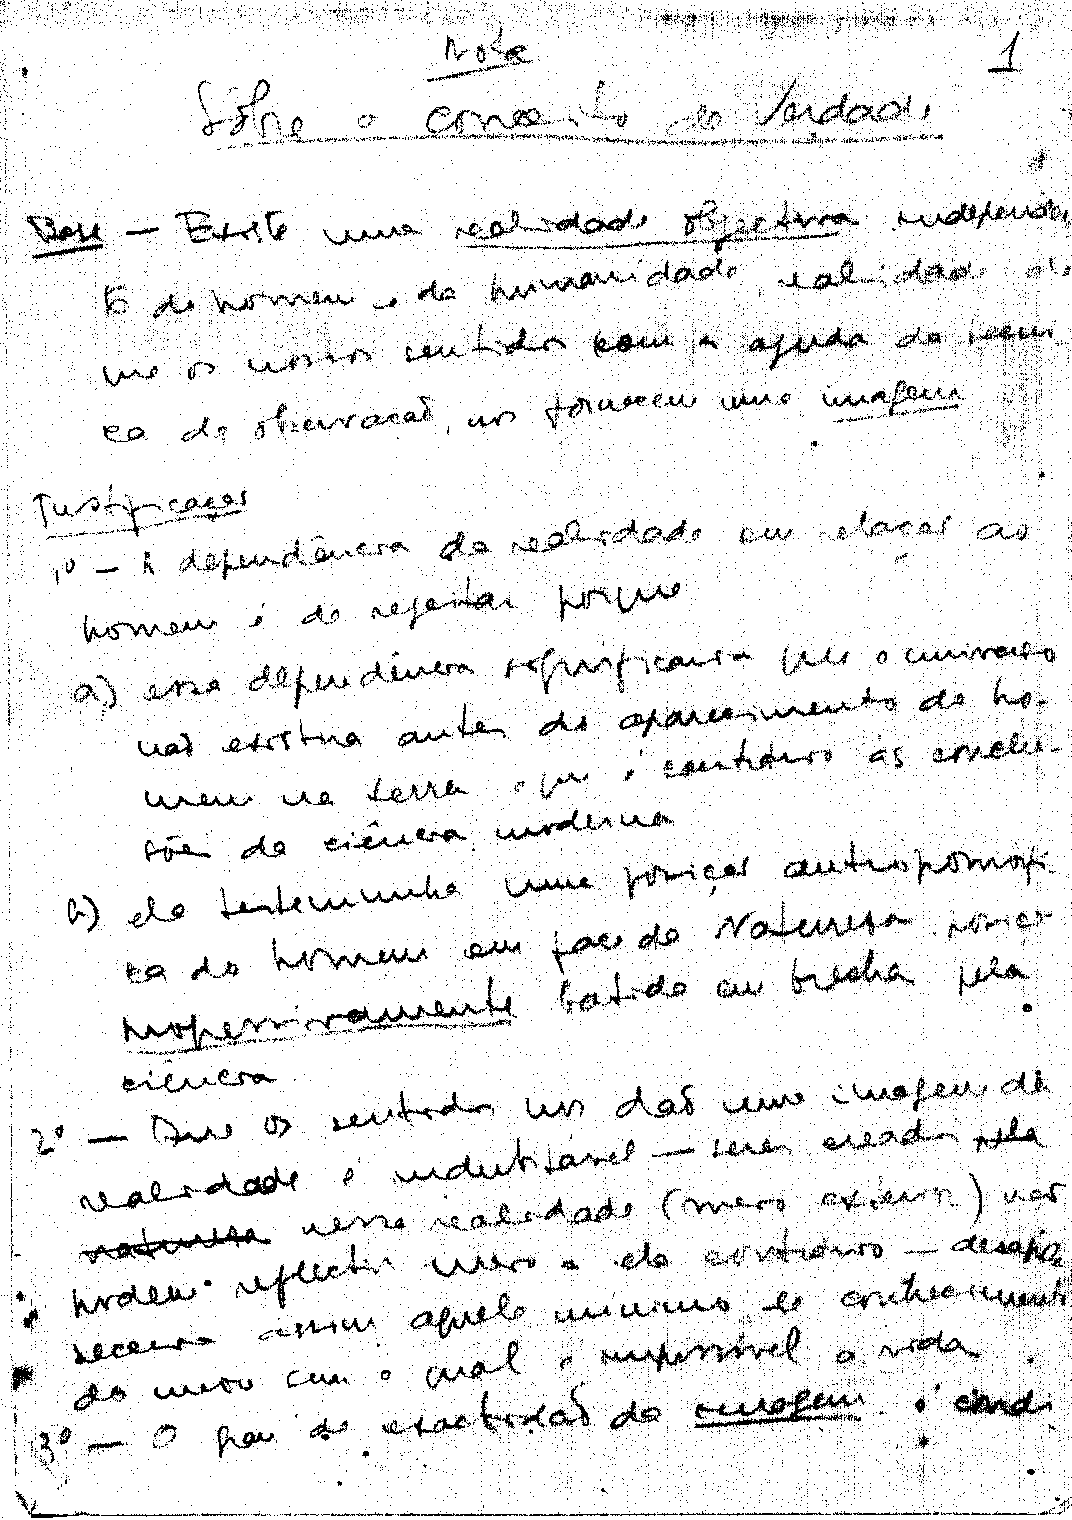 Nota
1
Sôbre o conceito de Verdade
Base — Existe uma realidade objectiva independen
te do homem e da humanidade, realidade de
que os nossos sentidos com a ajuda da técni
ca de observação, nos fornecem uma imagem
Justificação
1º — A dependência da realidade em relação ao
homem é de rejeitar porque
a) essa dependência significaria que o universo
não existiria antes do aparecimento do ho-
mem na terra o que é contrário às conclu-
sões da ciência moderna
b) ela testemunha uma posição antropomórfi
ca do homem em face da Natureza posição
progressivamente batida em brecha pela
ciência
2º — Que os sentidos nos dão uma imagem da
realidade é indubitável — seres creados pela
natureza nessa realidade (meio exterior) não
podem reflectir meio a ela contrário — desapa
receria assim aquele mínimo de conhecimento
do meio sem o qual é impossível a vida.
3º — O grau de exactidão da imagem é condi